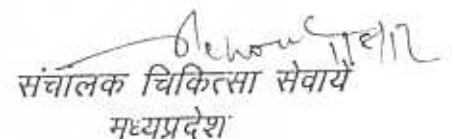 संचालक चिकित्सा सेवायें
मध्यप्रदेश